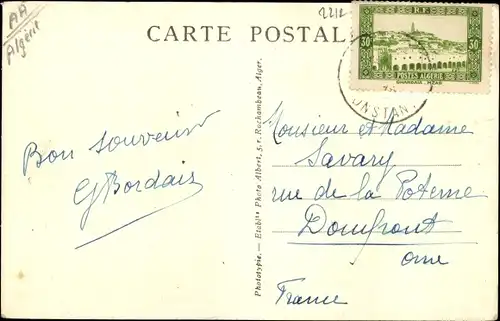 AA
Algérie
2212
CARTE POSTALE
R.F.
30
30
POSTES ALGERIE
GHARDAIA _ MZAB
CONSTANT
Bon souvenir
G Bordais
Phototypie. — Etablts Photo Albert, 5, r. Rochambeau, Alger.
Monsieur et Madame
Savary
rue de la Poterne
Domfront
Orne
France